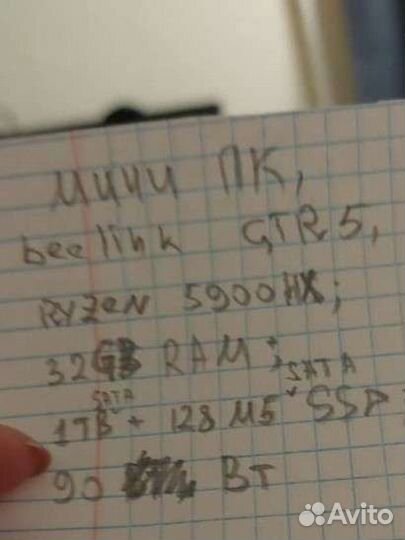 мини ПК,
beelink GTR5,
RYZEN 5900HX;
32GB RAM;
SATA
SATA
1TB + 128 МБ SSD
90 Вт
Avito